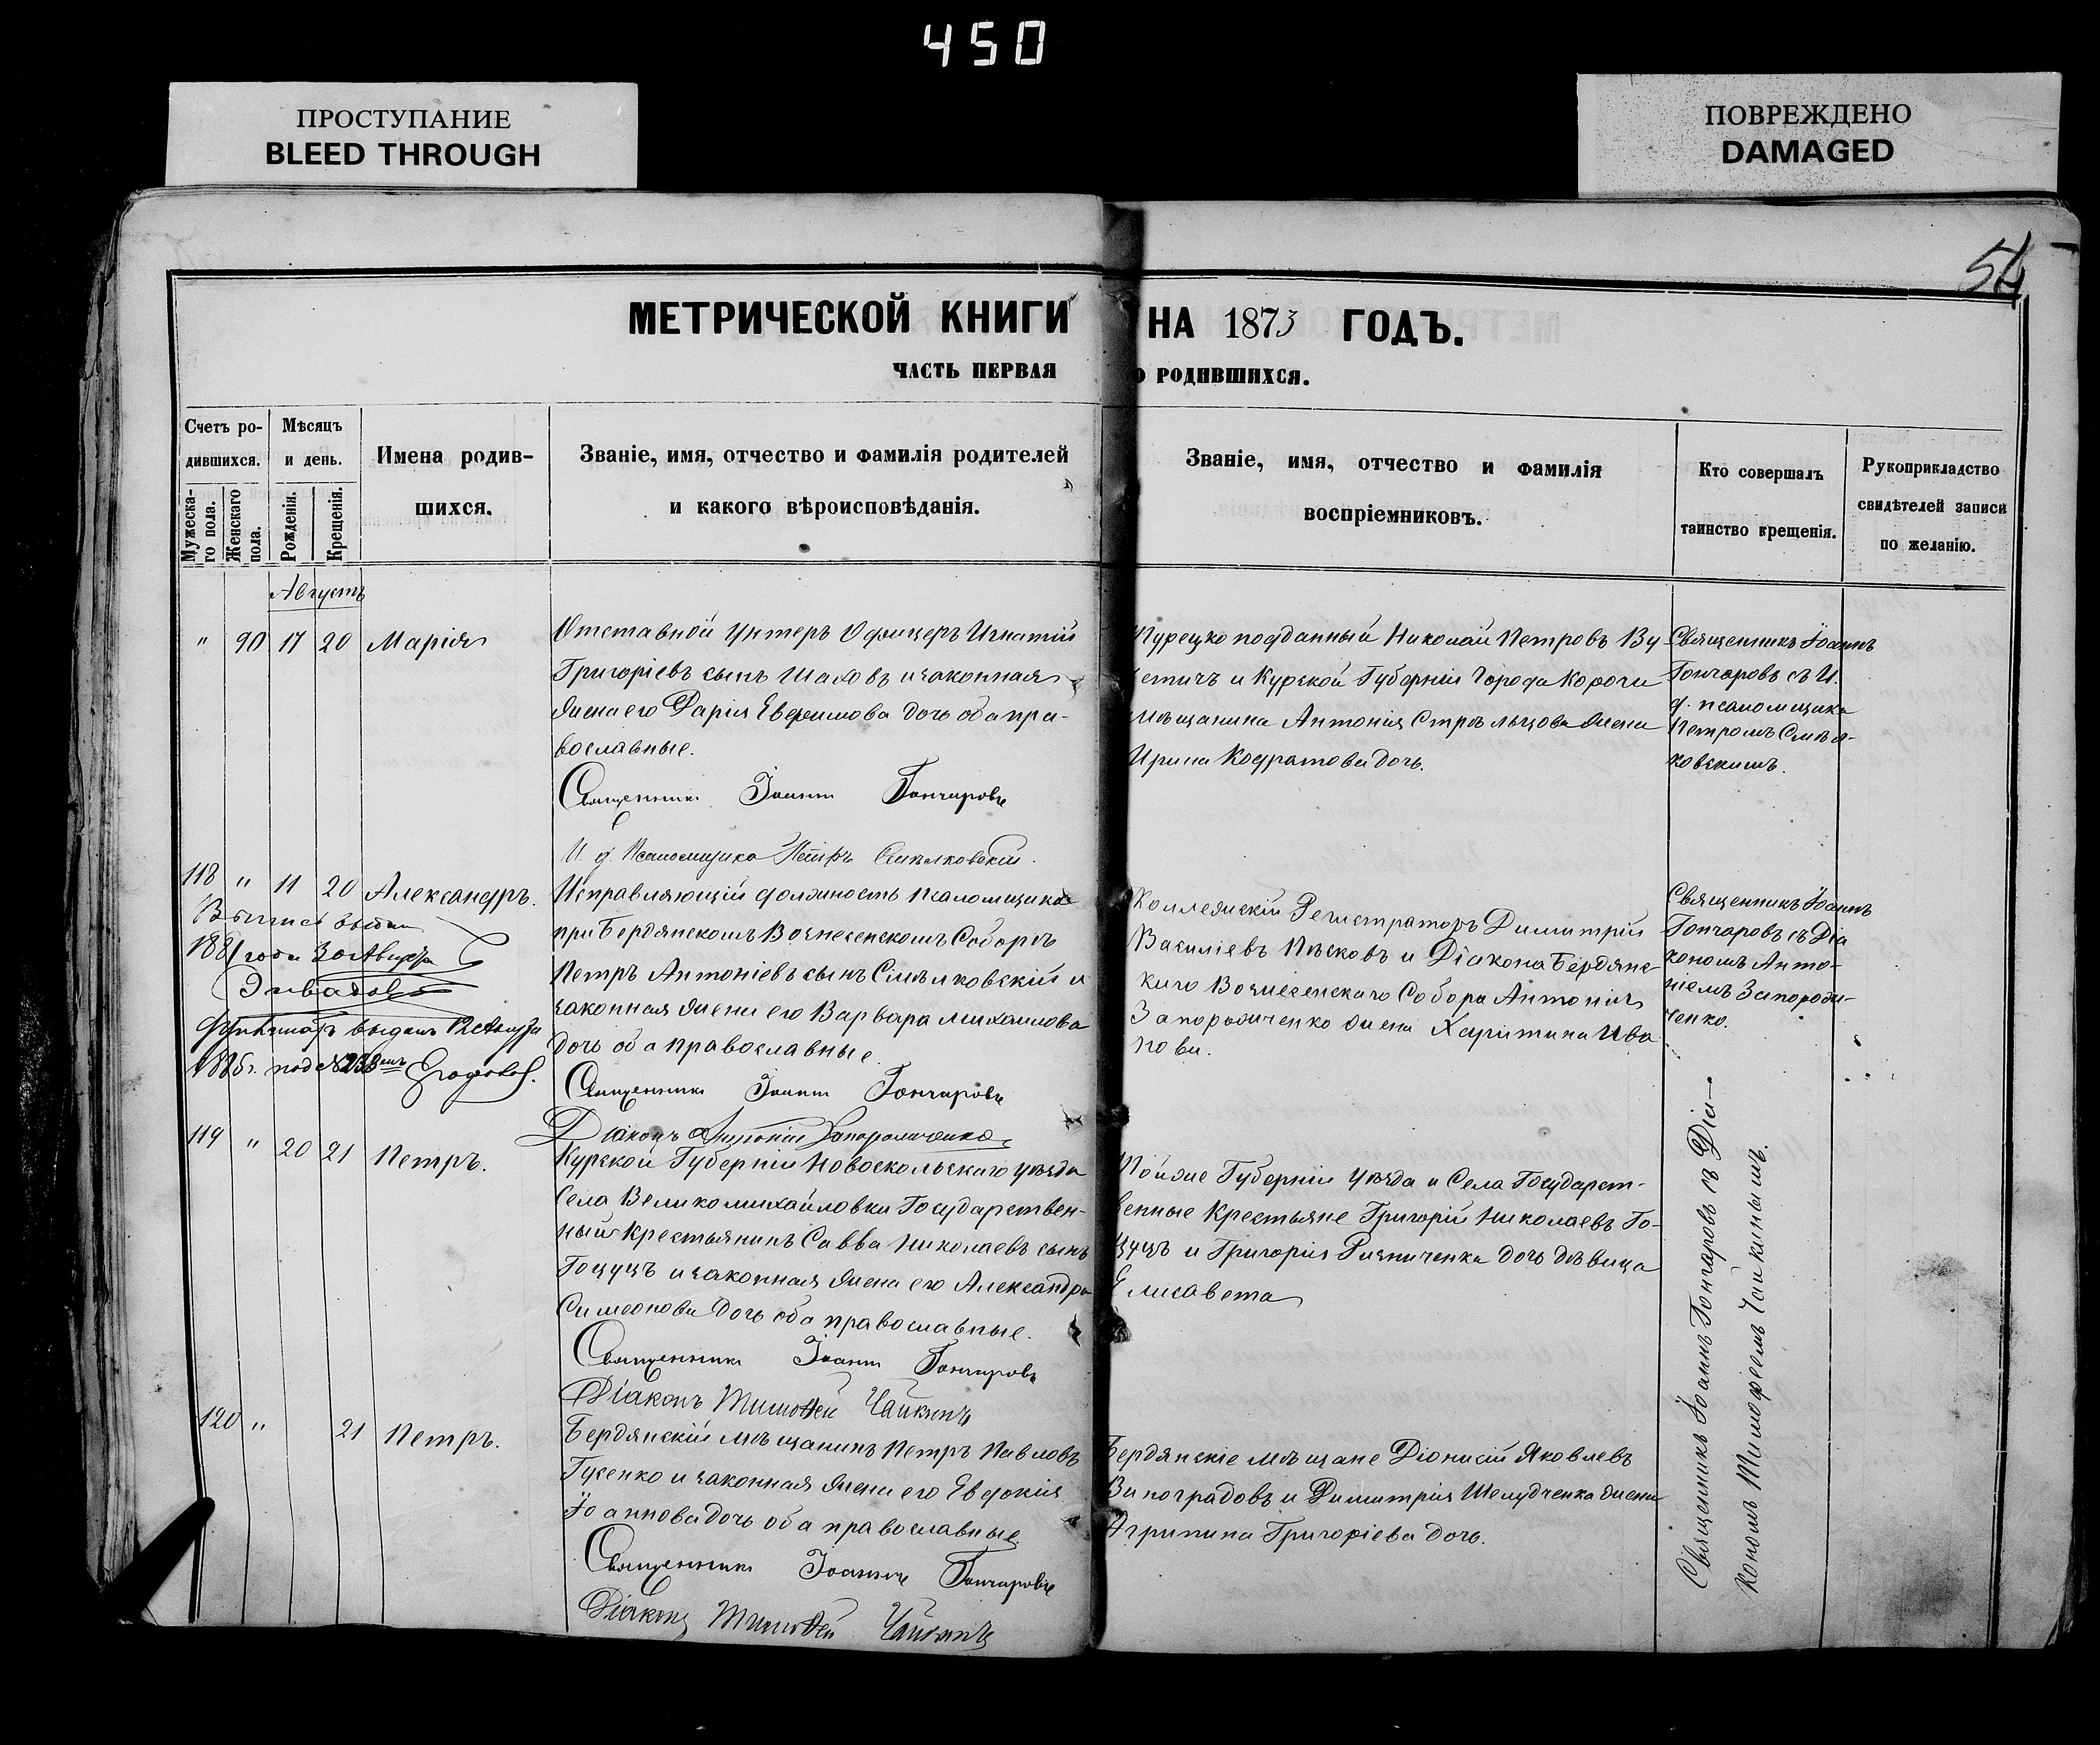 450
ПРОСТУПАНИЕ
BLEED THROUGH
ПОВРЕЖДЕНО
DAMAGED
54
МЕТРИЧЕСКОЙ КНИГИ НА 1873 ГОДЪ.
ЧАСТЬ ПЕРВАЯ О РОДИВШИХСЯ.
Счетъ ро-
дившихся.
Мужеска-
го пола.
Женскаго
пола.
Мѣсяцъ
и день.
Рожденія.
Крещенія.
Имена родив-
шихся.
Званіе, имя, отчество и фамилія родителей
и какого вѣроисповѣданія.
Званіе, имя, отчество и фамилія
воспріемниковъ.
Кто совершалъ
таинство крещенія.
Рукоприкладство
свидѣтелей записи
по желанію.
Августъ
" 90 17 20 Марія
Отставной Унтеръ Офицеръ Игнатій
Григоріевъ сынъ Шаховъ и законная
жена его Дарія Евфимова дочь оба пра-
вославные.
Священникъ Іоаннъ Гончаровъ
И. д. Псаломщика Петръ Смѣлковскій.
Турецко подданный Николай Петровъ Ву
етичъ и Курской Губерніи Города Корочи
мѣщанина Антонія Стрѣльцова жена
Ирина Кодратова дочь.
Священникъ Іоаннъ
Гончаровъ съ И.
д. псаломщика
Петромъ Смѣл-
ковскимъ.
118 " 11 20 Александръ.
Выпись выдан
1881 года 30 Августа
выдан 12 Августа
1885 г. под № 238
Исправляющій должность псаломщика
при Бердянскомъ Вознесенскомъ Соборѣ
Петръ Антоніевъ сынъ Смѣлковскій и
законная жена его Варвара Михаилова
дочь оба православные.
Священникъ Іоаннъ Гончаровъ
Діаконъ Антоній Запорожченко
Коллежскій Регистраторъ Димитрій
Василіевъ Пѣсковъ и Діакона Бердянс-
каго Вознесенскаго Собора Антонія
Запорожченко жена Харитина Ива
нова.
Священникъ Іоаннъ
Гончаровъ съ Діа
кономъ Анто-
ніемъ Запорож-
ченко.
119 " 20 21 Петръ.
Курской Губерніи Новоскольскаго уѣзда
Села Великомихайловки Государствен-
ный Крестьянинъ Савва Николаевъ сынъ
Гоцуцъ и законная жена его Александра
Симеонова дочь оба православные.
Священникъ Іоаннъ Гончаровъ
Діаконъ Тимоѳей Чайкинъ
Тойже Губерніи уѣзда и Села Государст-
венные Крестьяне Григорій Николаевъ Го-
цуцъ и Григорія Ризниченка дочь дѣвица
Елисавета
Священникъ Іоаннъ Гончаровъ съ Діа-
кономъ Тимофеемъ Чайкинымъ.
120 " 21 Петръ.
Бердянскій мѣщанинъ Петръ Павловъ
Гусенко и законная жена его Евдокія
Іоаннова дочь оба православные
Священникъ Іоаннъ Гончаровъ
Діаконъ Тимоѳей Чайкинъ
Бердянскіе мѣщане Діонисій Яковлевъ
Виноградовъ и Димитрія Шелудченка жена
Агрипина Григоріева дочь.